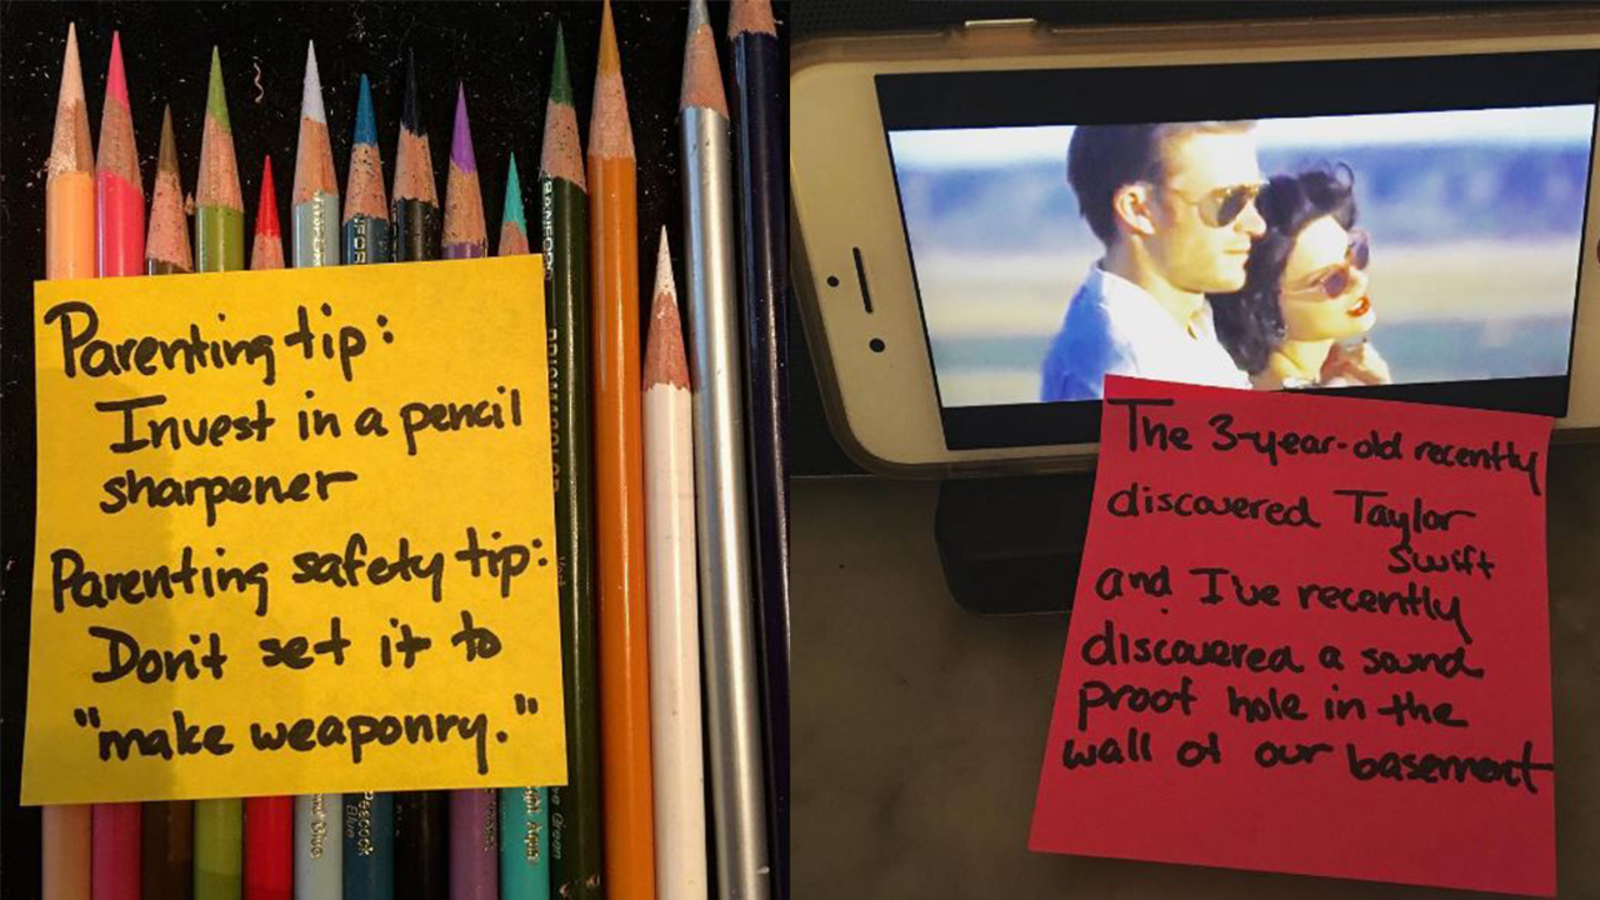 Parenting tip:
Invest in a pencil
sharpener
Parenting safety tip:
Don't set it to
"make weaponry."
The 3-year-old recently
discovered Taylor
Swift
and I've recently
discovered a sound
proof hole in the
wall of our basement
Peacock
Blue